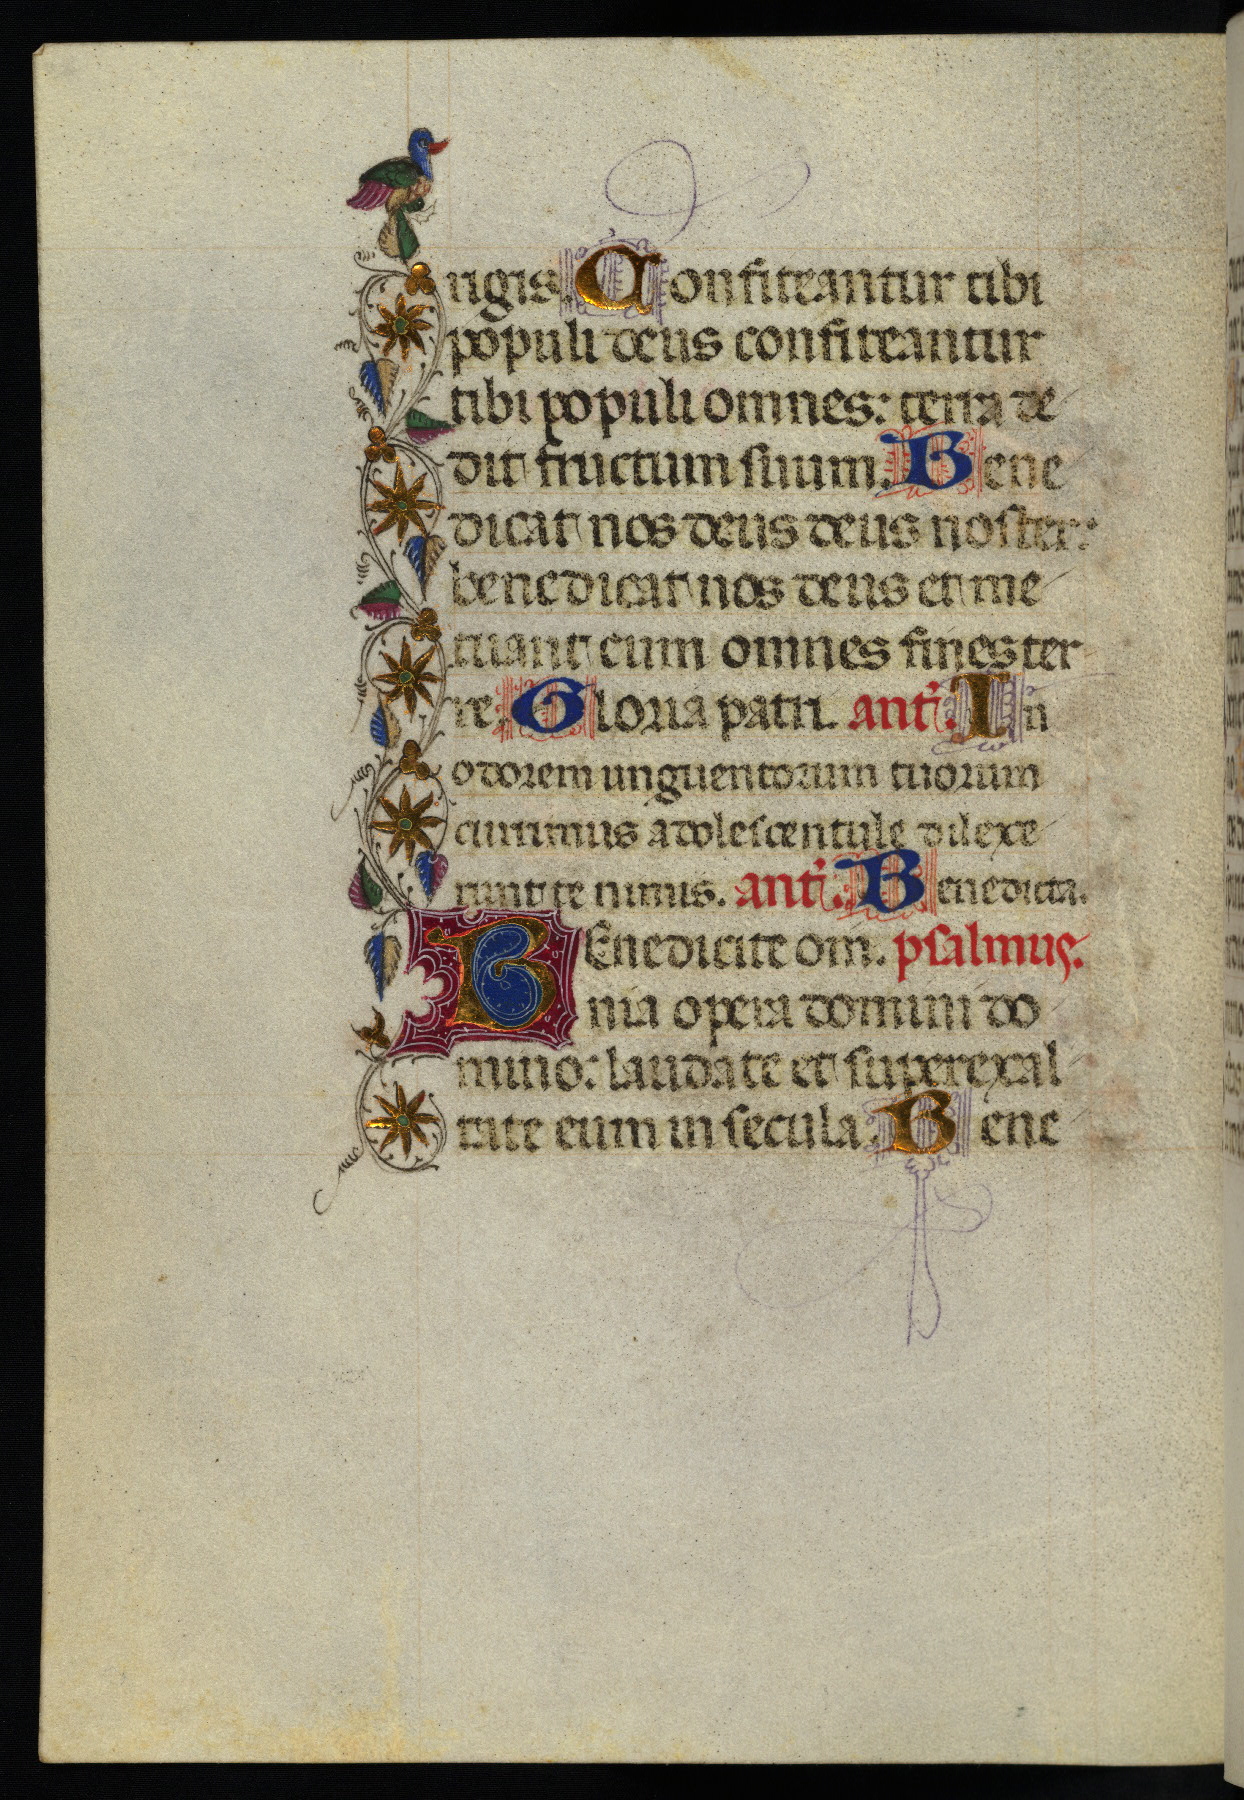 rigis. Confiteantur tibi
populi deus confiteantur
tibi populi omnes: terra de
dit fructum suum. Bene
dicat nos deus deus noster:
benedicat nos deus et me
tuant eum omnes fines ter
re. Gloria patri. ant'. In
odorem unguentorum tuorum
currimus adolescentule dilexe
runt te nimis. ant'. Benedicta.
BEnedicite om. psalmus.
nia opera domini do
mino: laudate et superexal
tate eum in secula. Bene